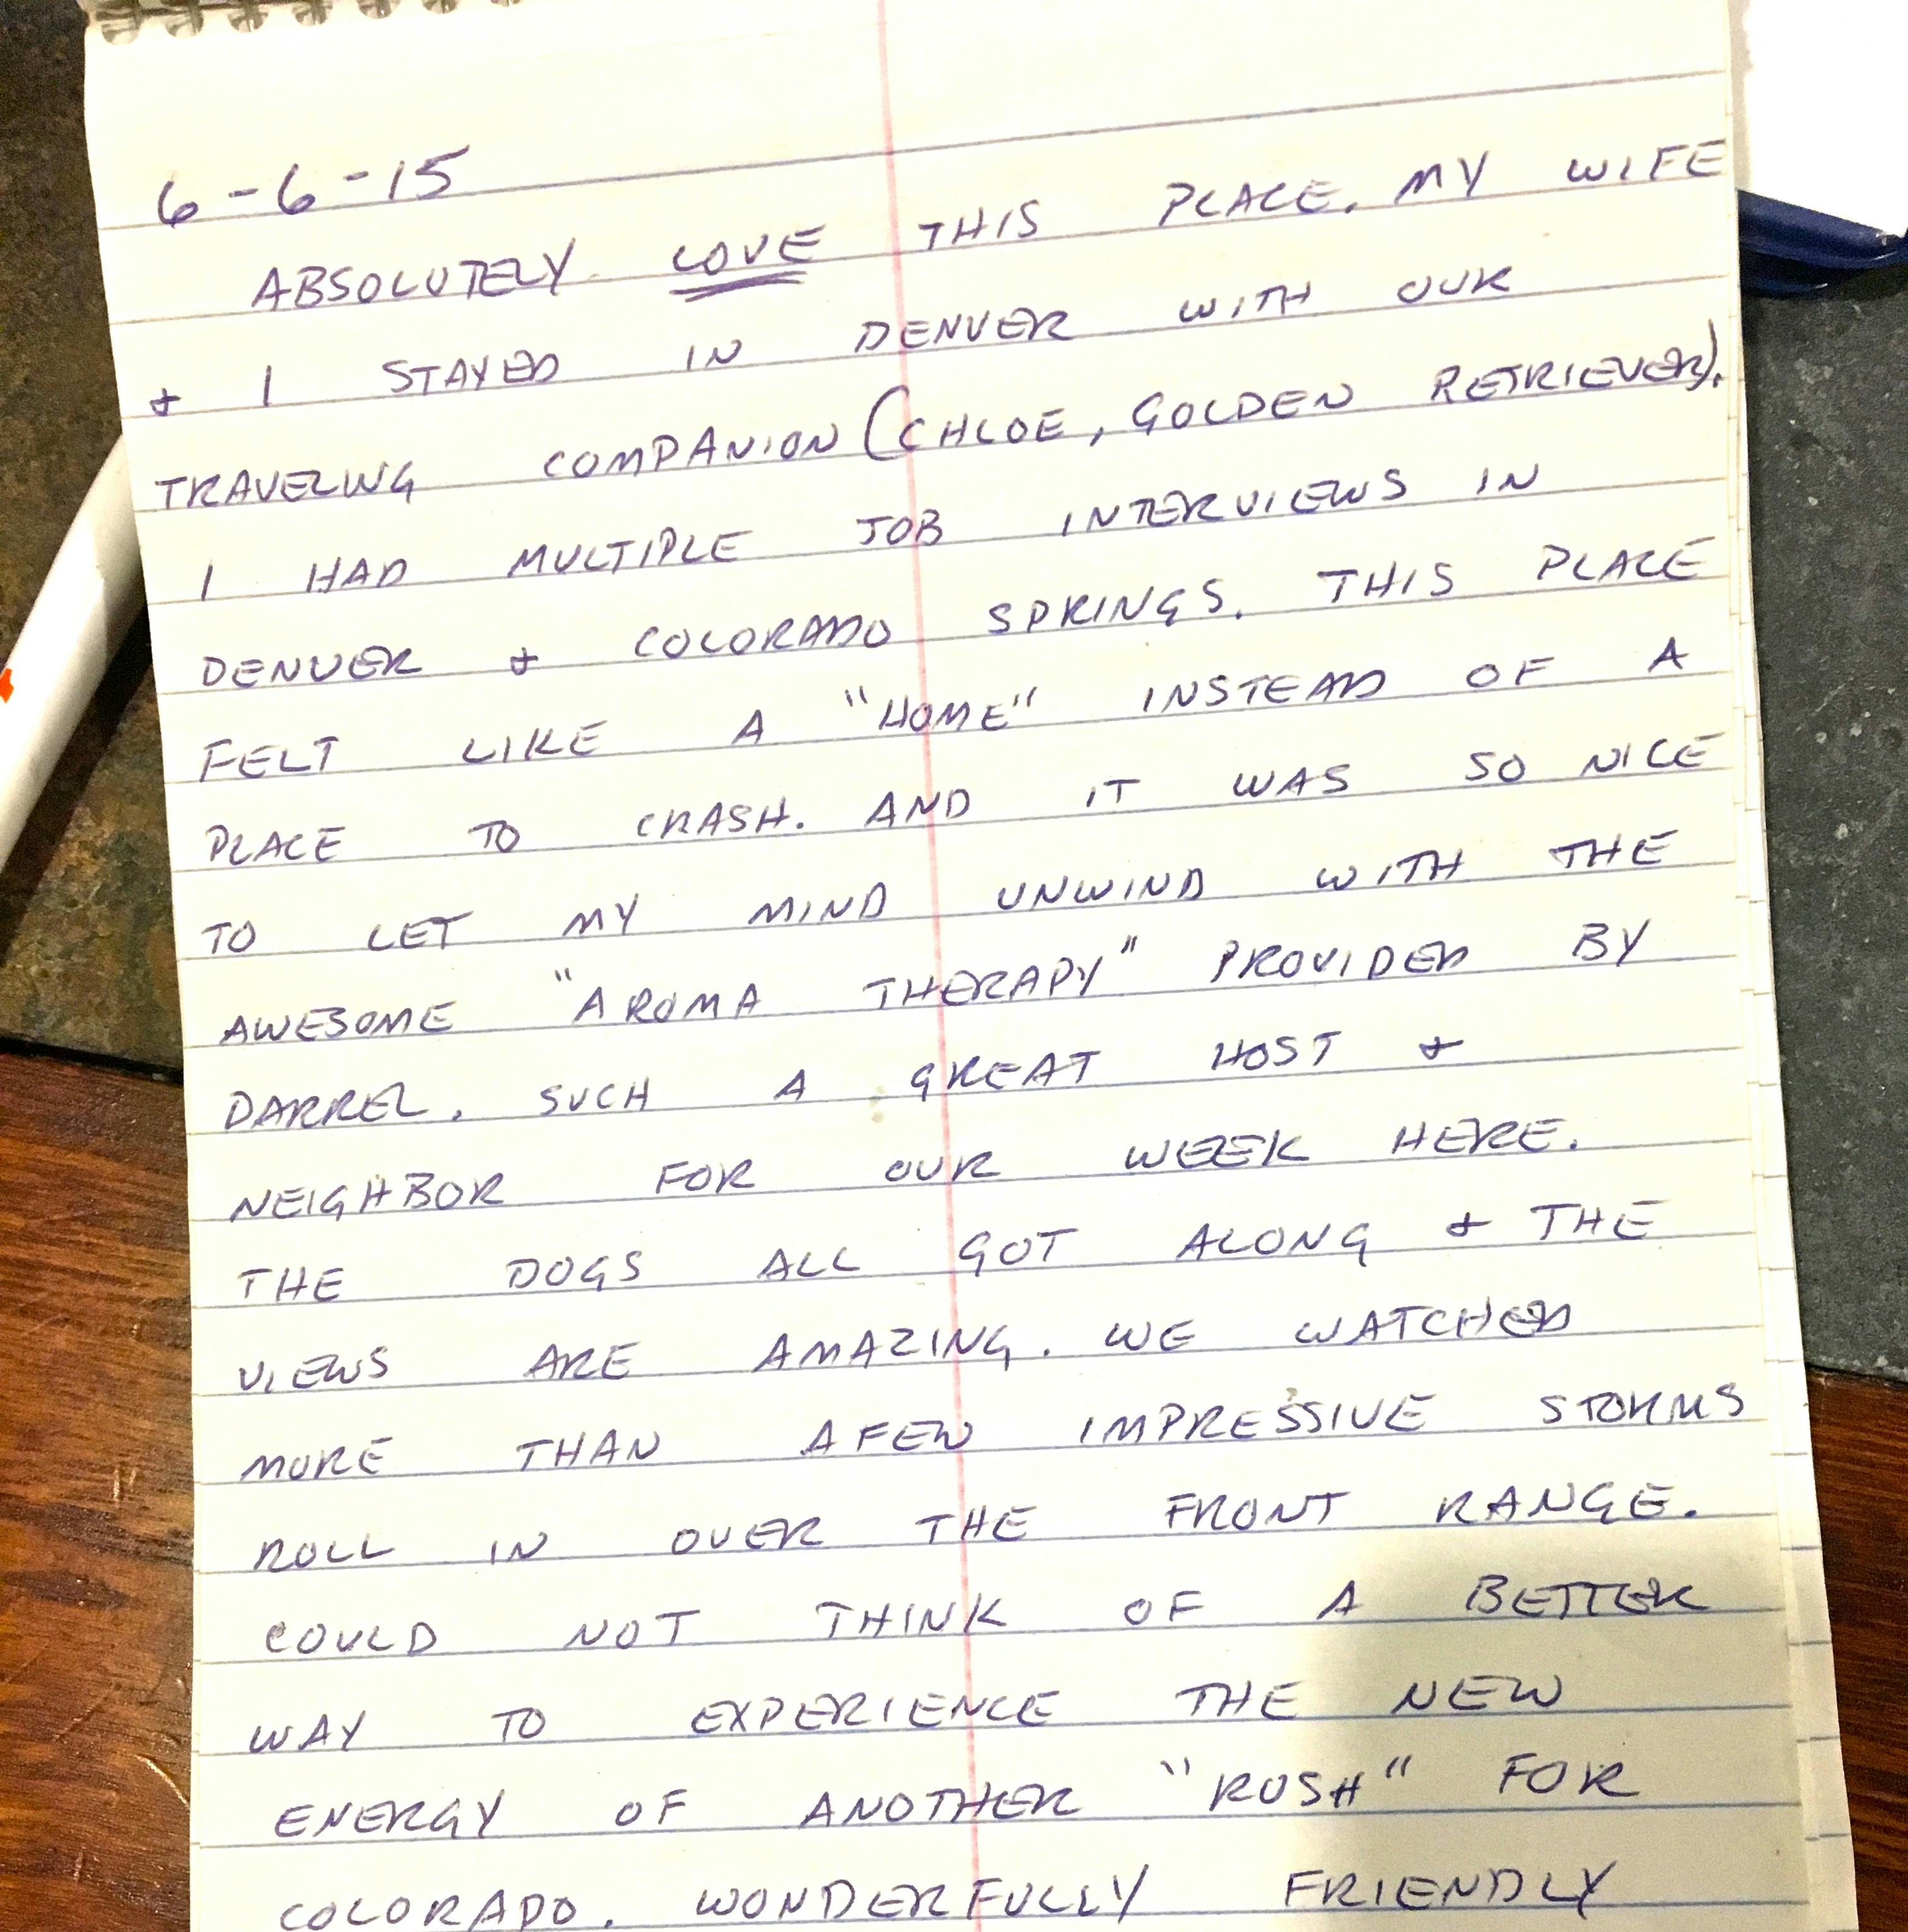 6-6-15
ABSOLUTELY LOVE THIS PLACE. MY WIFE
+ I STAYED IN DENVER WITH OUR
TRAVELING COMPANION (CHLOE, GOLDEN RETRIEVER).
I HAD MULTIPLE JOB INTERVIEWS IN
DENVER + COLORADO SPRINGS. THIS PLACE
FELT LIKE A "HOME" INSTEAD OF A
PLACE TO CRASH. AND IT WAS SO NICE
TO LET MY MIND UNWIND WITH THE
AWESOME "AROMA THERAPY" PROVIDED BY
DARREL. SUCH A GREAT HOST +
NEIGHBOR FOR OUR WEEK HERE.
THE DOGS ALL GOT ALONG + THE
VIEWS ARE AMAZING. WE WATCHED
MORE THAN A FEW IMPRESSIVE STORMS
ROLL IN OVER THE FRONT RANGE.
COULD NOT THINK OF A BETTER
WAY TO EXPERIENCE THE NEW
ENERGY OF ANOTHER "RUSH" FOR
COLORADO. WONDERFULLY FRIENDLY